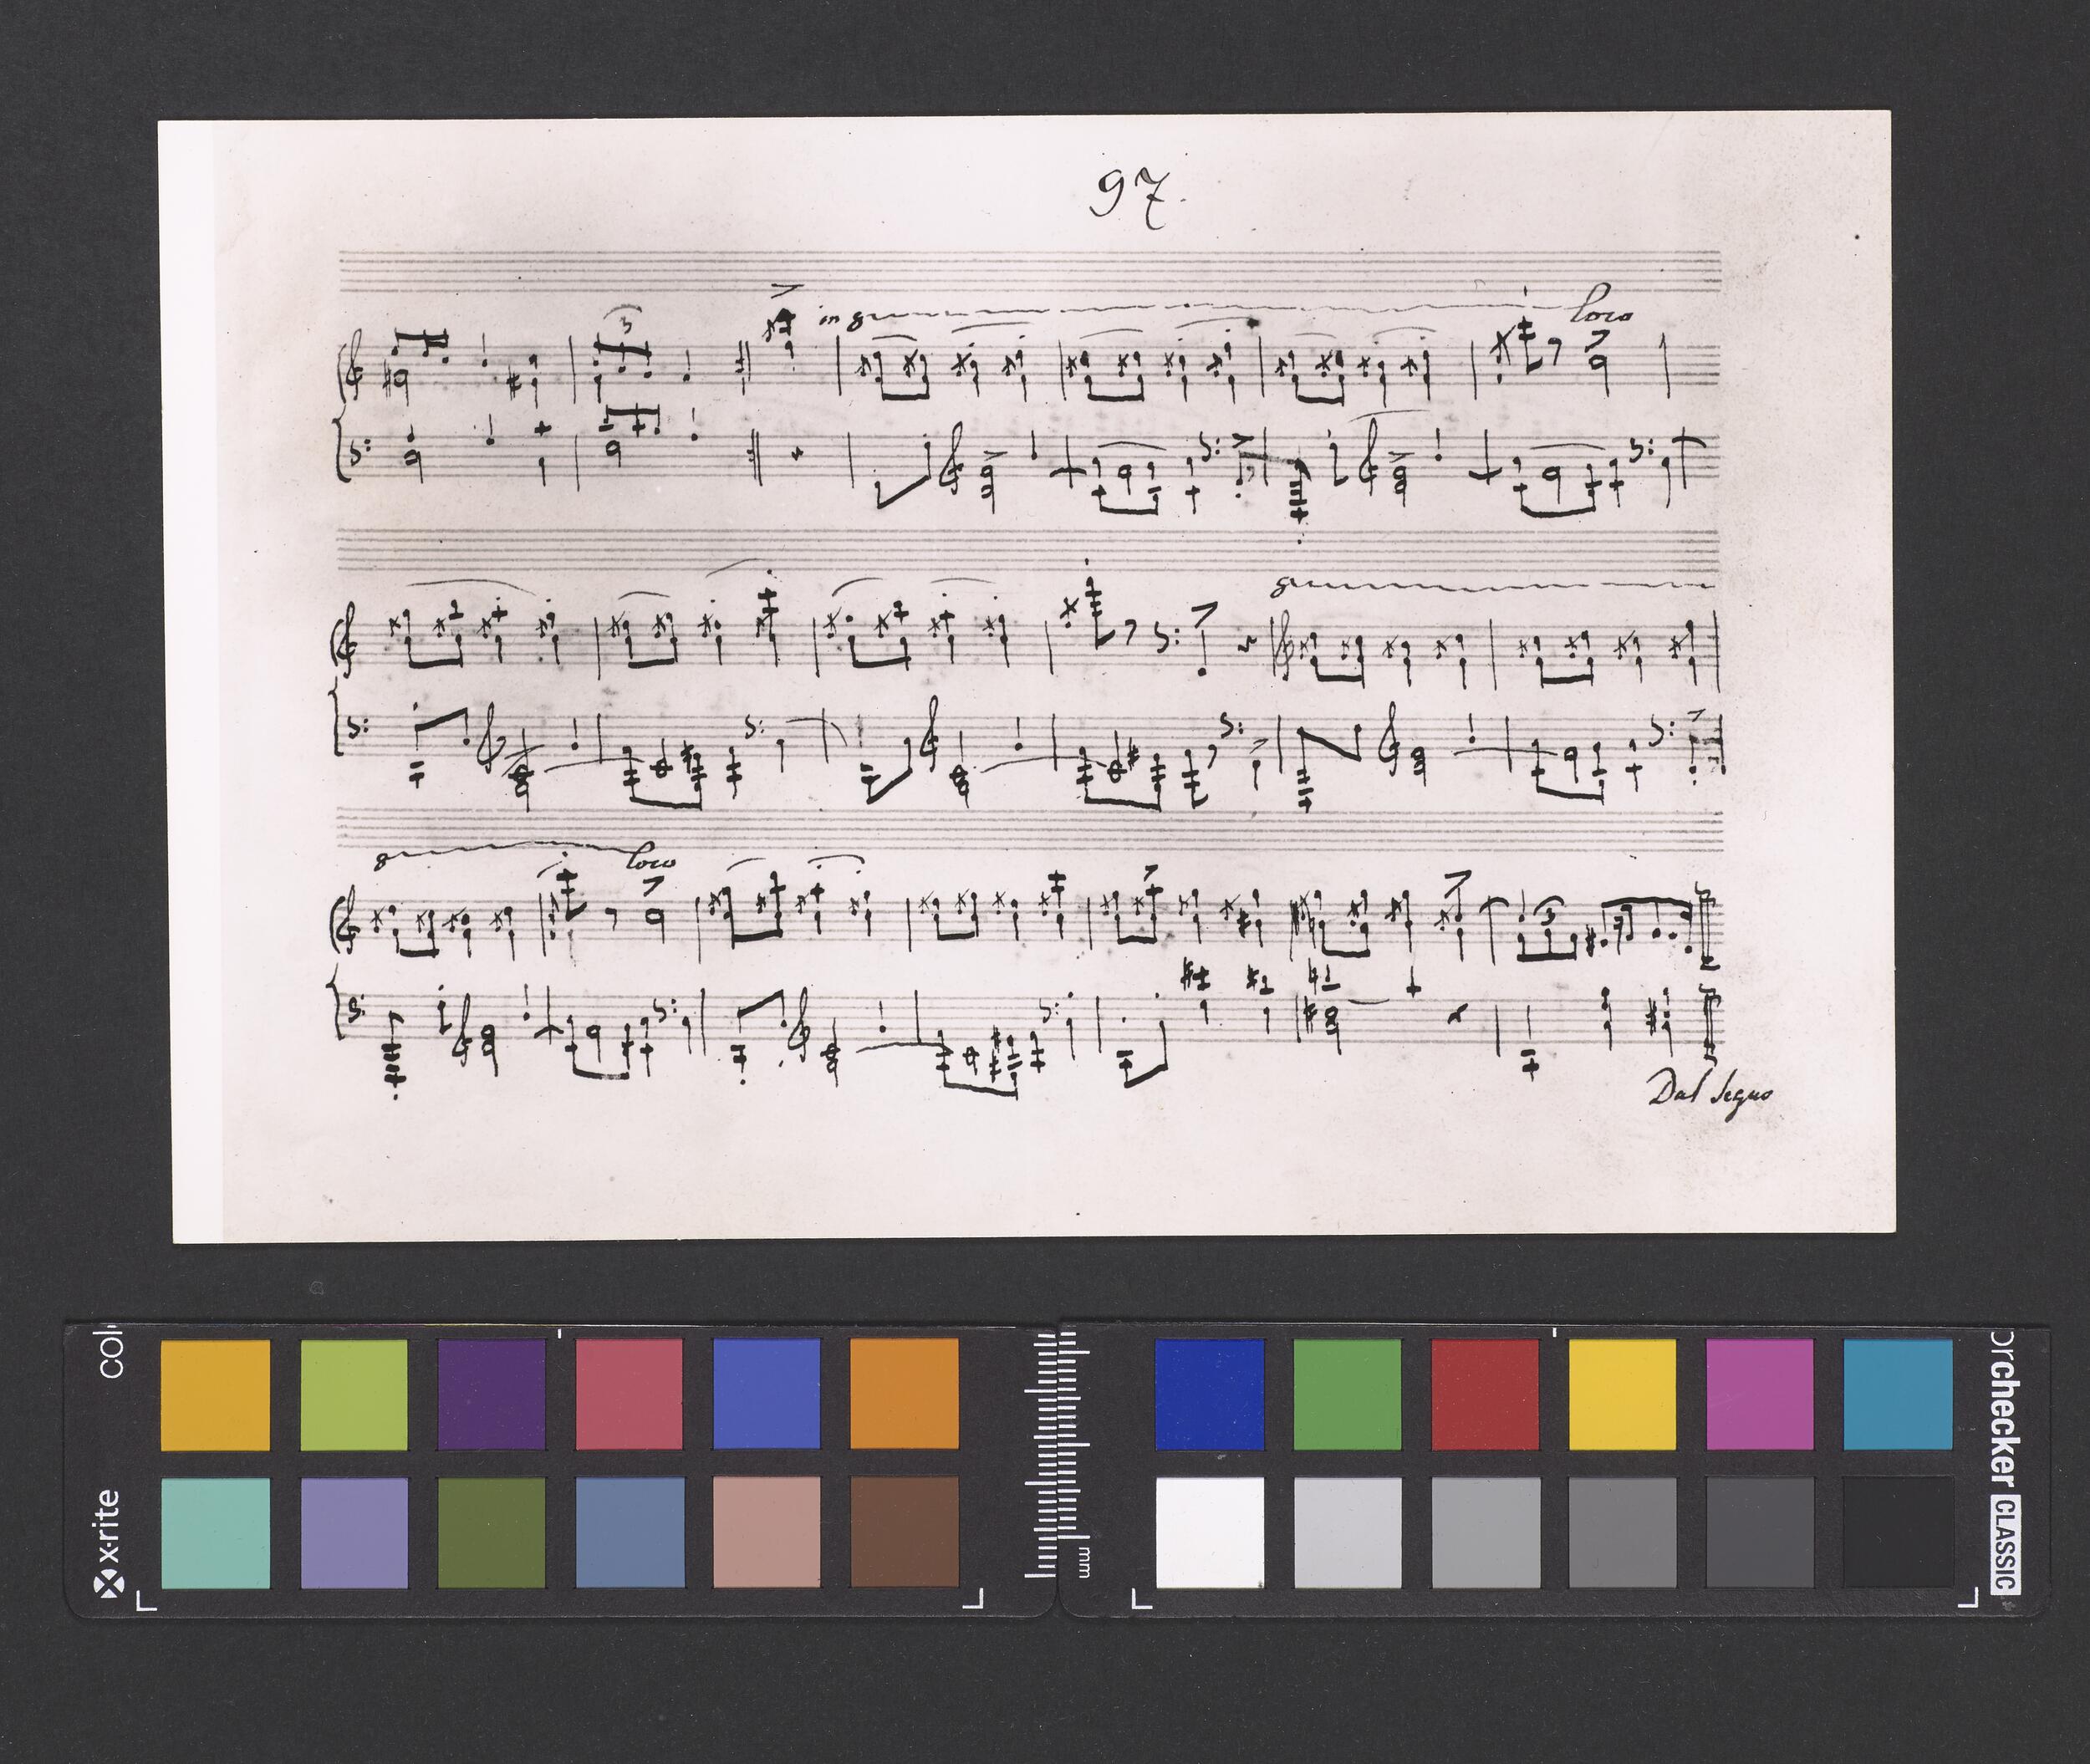 97.
3
in 8 loco
8
8 loco
3
Dal Segno
col
x-rite
mm
mm
orchecker CLASSIC